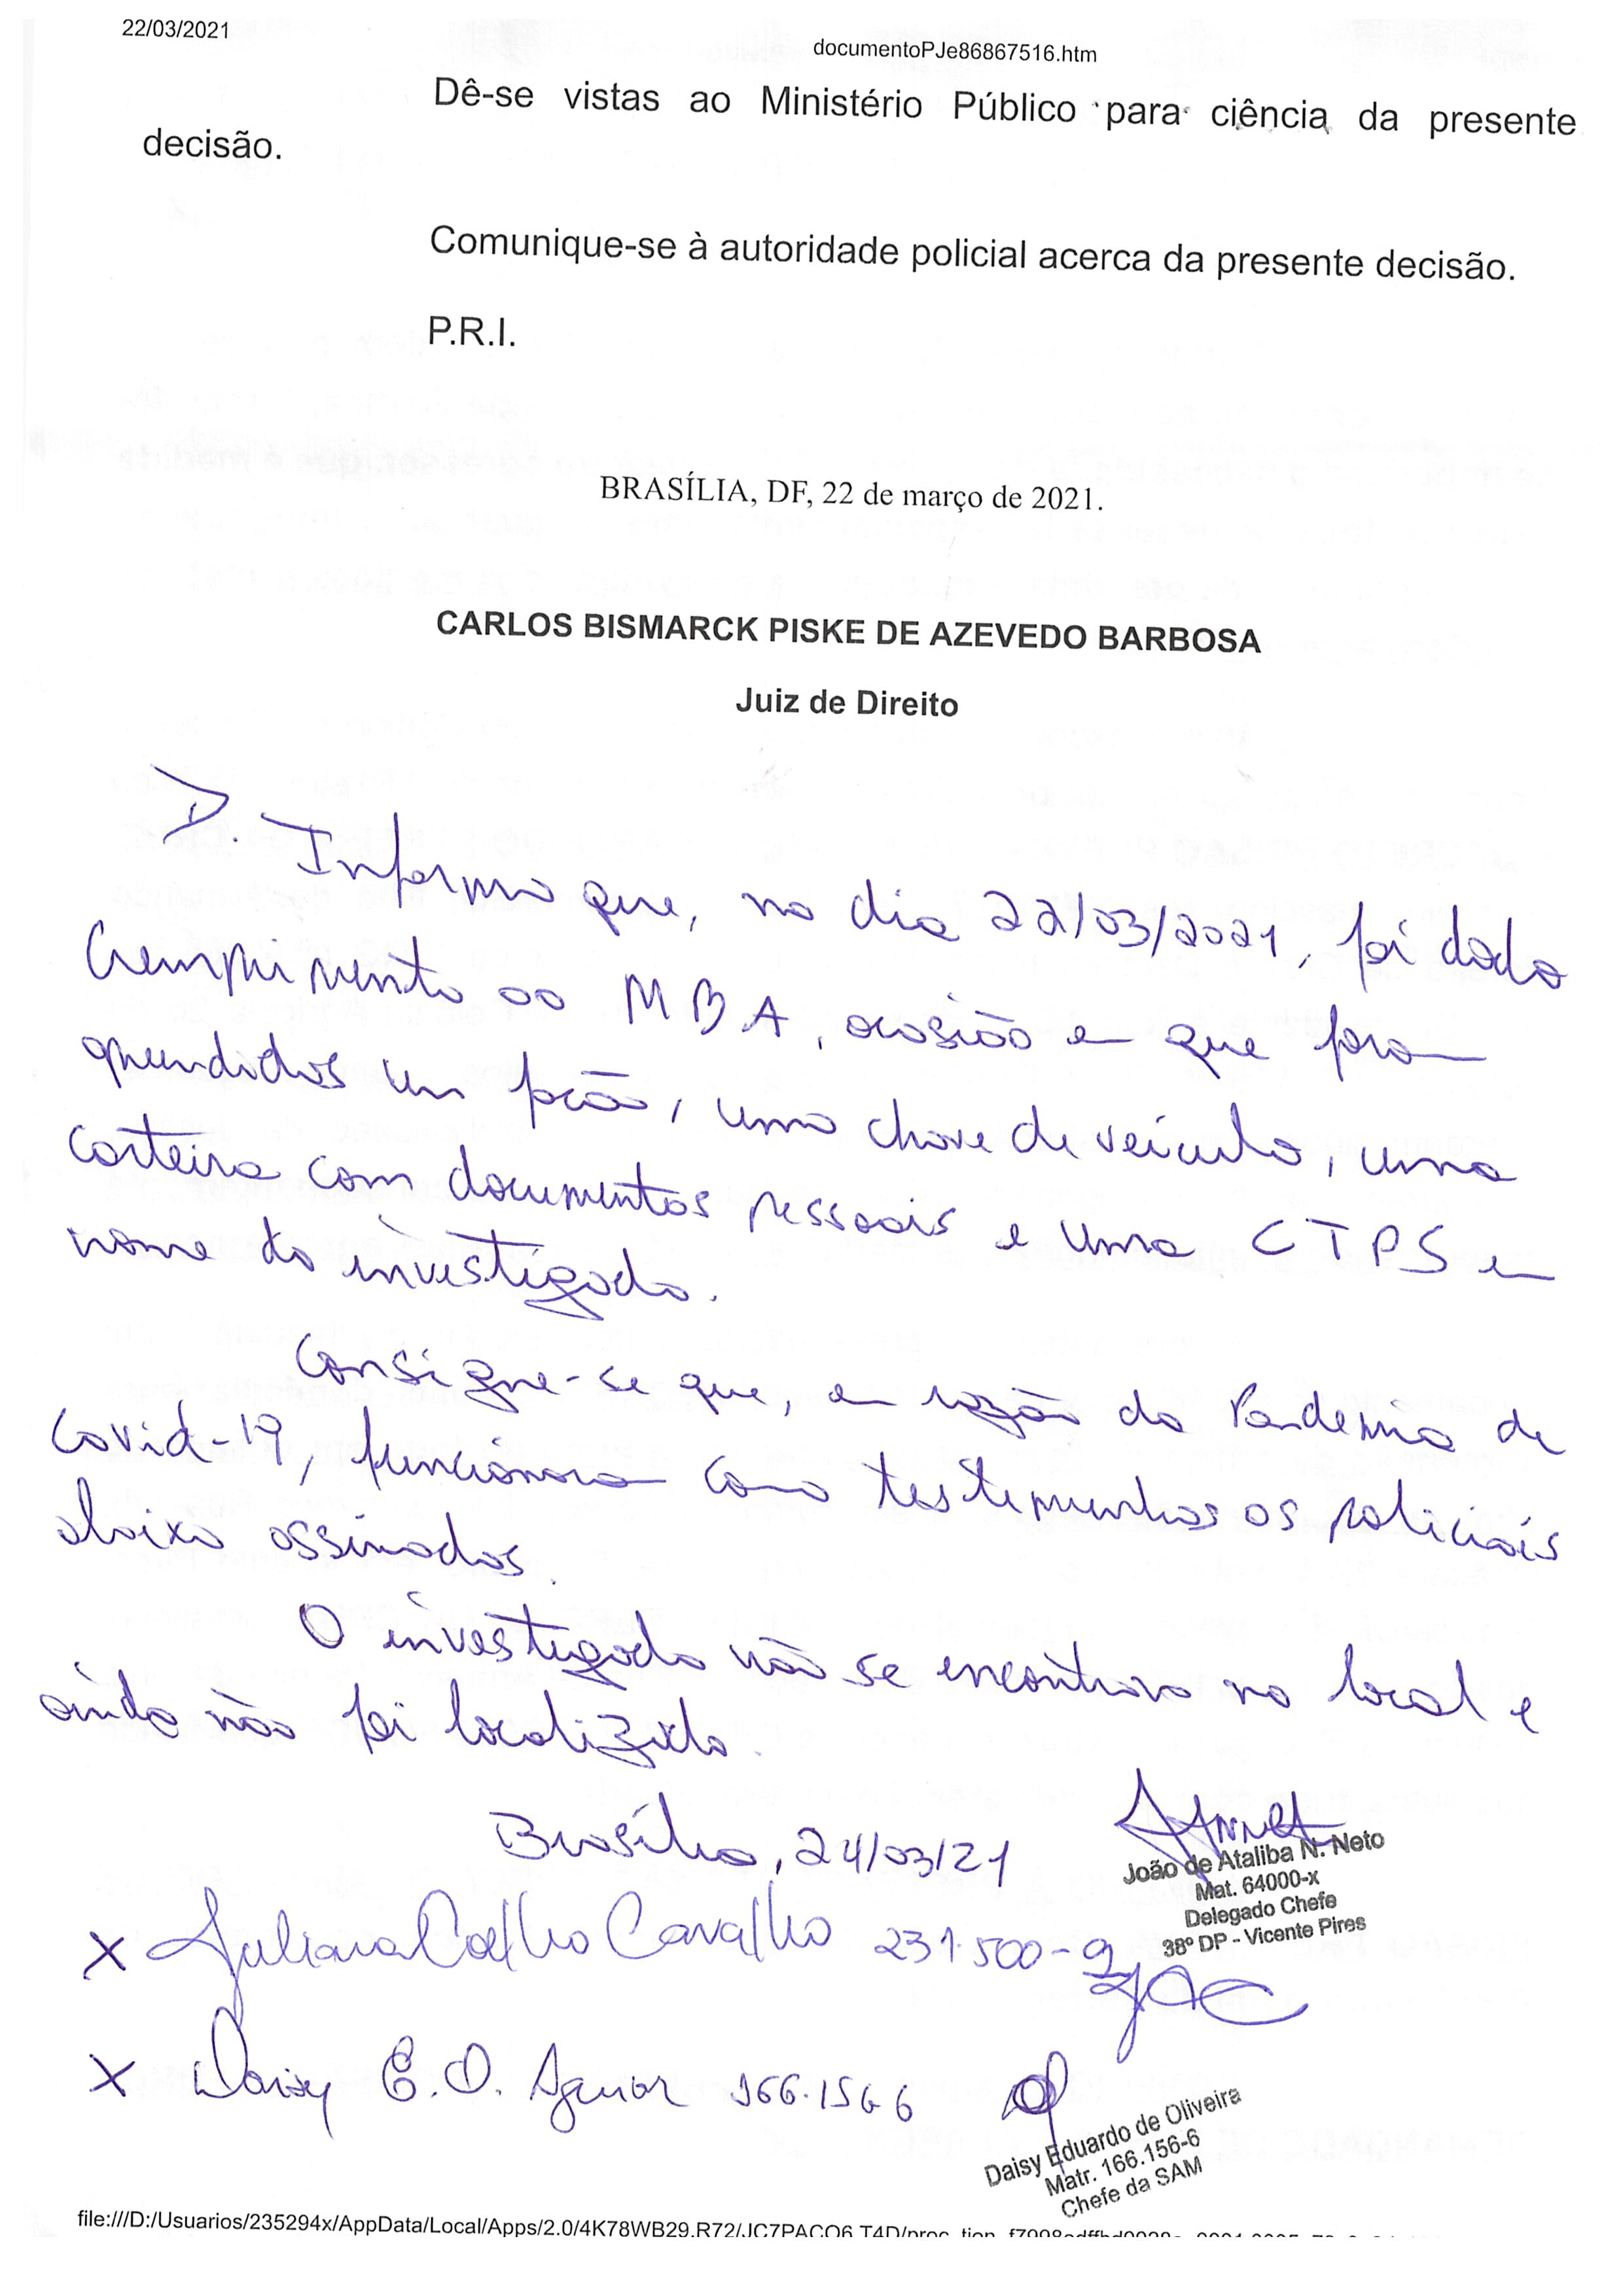 22/03/2021
documentoPJe86867516.htm
Dê-se vistas ao Ministério Público para ciência da presente
decisão.
Comunique-se à autoridade policial acerca da presente decisão.
P.R.I.
BRASÍLIA, DF, 22 de março de 2021.
CARLOS BISMARCK PISKE DE AZEVEDO BARBOSA
Juiz de Direito
D. Informo que, no dia 22/03/2021, foi dado
cumprimento ao MBA, ocasião em que foram
apreendidos um facão, uma chave de veículo, uma
carteira com documentos pessoais e uma CTPS em
nome do investigado.
Consigne-se que, em razão da Pandemia de
Covid-19, funcionaram como testemunhas os policiais
abaixo assinados.
O investigado não se encontrava no local e
ainda não foi localizado.
Brasília, 24/03/21
João de Ataliba N. Neto
Mat. 64000-x
Delegado Chefe
38º DP - Vicente Pires
X Juliana Coelho Carvalho 231.500-9
X Daisy E. O. Aguiar 166.156 6
Daisy Eduardo de Oliveira
Matr. 166.156-6
Chefe da SAM
file:///D:/Usuarios/235294x/AppData/Local/Apps/2.0/4K78WB29.R72/JC7PACO6.T4D/proc..tion_